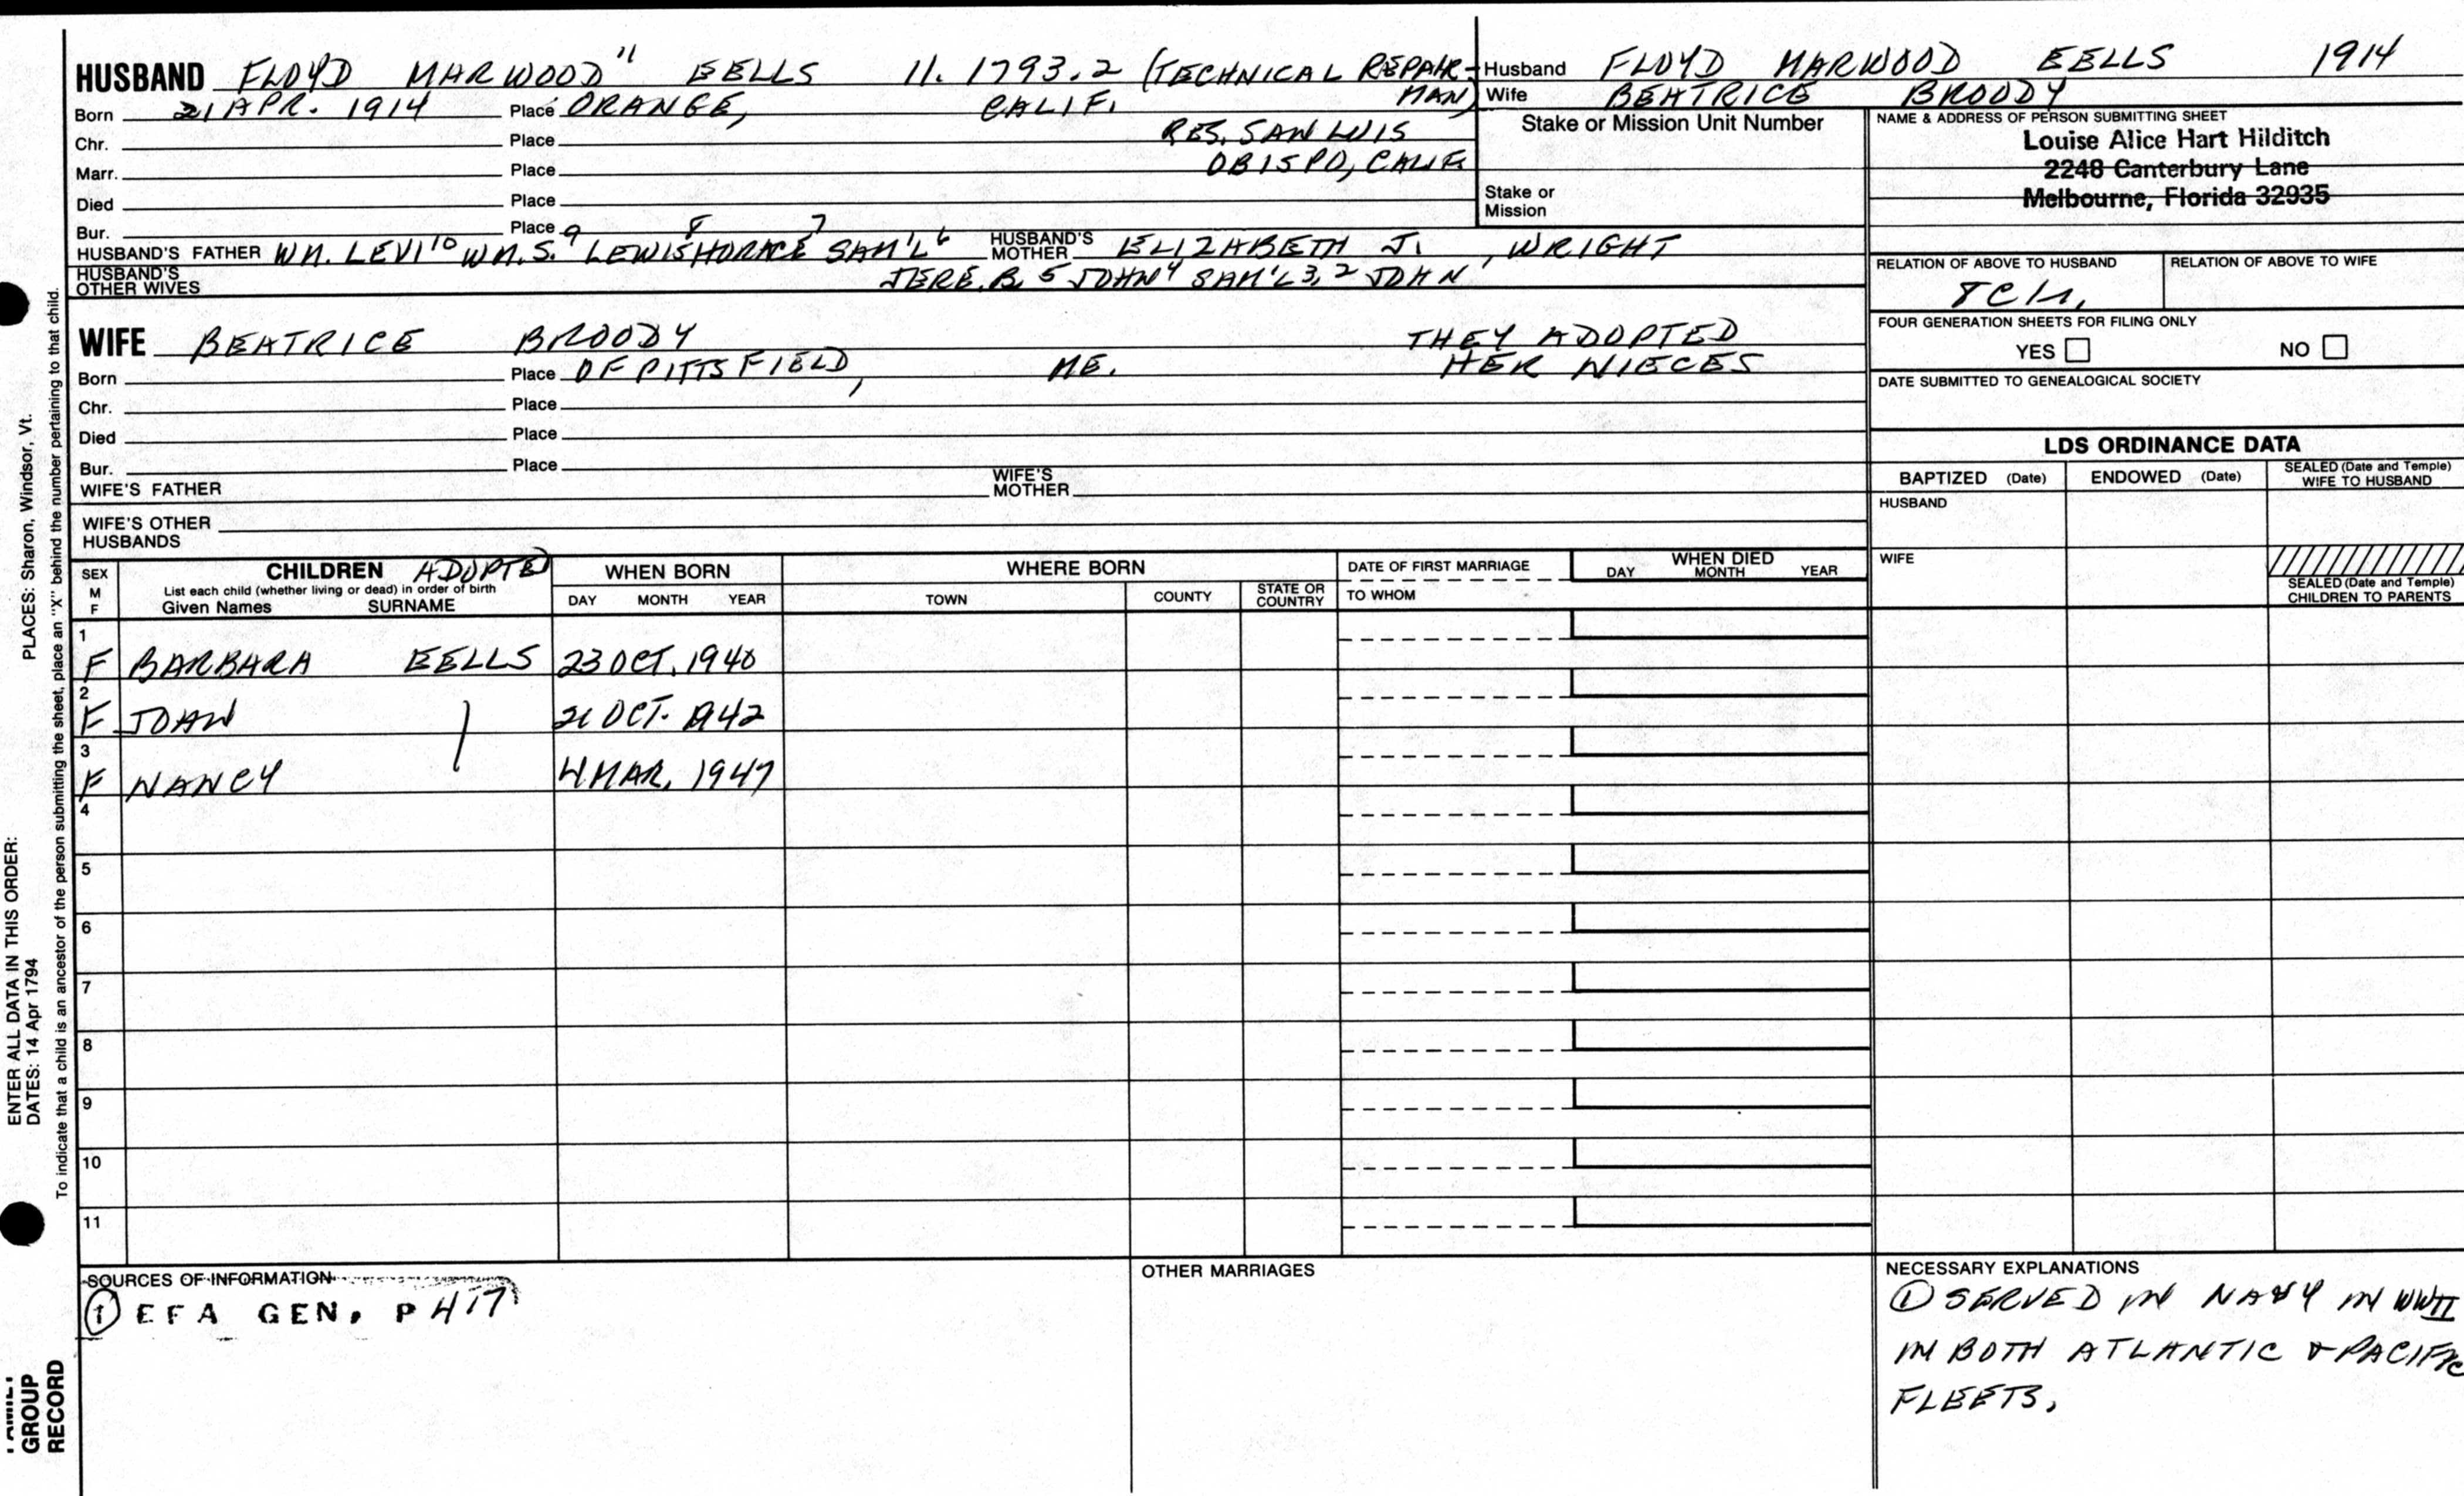 HUSBAND FLOYD MARWOOD 11 EELLS 11. 1793.2 (TECHNICAL REPAIR-
MAN)
Born 21 APR. 1914 Place ORANGE, CALIF.
Chr. Place RES. SAN LUIS
Marr. Place OBISPO, CALIF.
Died Place
Bur. Place
HUSBAND'S FATHER WM. LEVI 10 WM. S. 9 LEWIS 8 HORACE 7 SAM'L 6 HUSBAND'S MOTHER ELIZABETH J. WRIGHT
HUSBAND'S OTHER WIVES JERE. B. 5 JOHN 4 SAM'L 3, 2 JOHN
WIFE BEATRICE BROODY THEY ADOPTED
HER NIECES
Born Place OF PITTSFIELD, ME.
Chr. Place
Died Place
Bur. Place
WIFE'S FATHER WIFE'S MOTHER
WIFE'S OTHER HUSBANDS
Husband FLOYD MARWOOD EELLS 1914
Wife BEATRICE BROODY
Stake or Mission Unit Number
Stake or Mission
NAME & ADDRESS OF PERSON SUBMITTING SHEET
Louise Alice Hart Hilditch
2248 Canterbury Lane
Melbourne, Florida 32935
RELATION OF ABOVE TO HUSBAND RELATION OF ABOVE TO WIFE
FOUR GENERATION SHEETS FOR FILING ONLY
YES NO
DATE SUBMITTED TO GENEALOGICAL SOCIETY
LDS ORDINANCE DATA
BAPTIZED (Date) ENDOWED (Date) SEALED (Date and Temple) WIFE TO HUSBAND
HUSBAND
WIFE
SEALED (Date and Temple) CHILDREN TO PARENTS
SEX M F
CHILDREN ADOPTED
List each child (whether living or dead) in order of birth
Given Names SURNAME
WHEN BORN
DAY MONTH YEAR
WHERE BORN
TOWN COUNTY STATE OR COUNTRY
DATE OF FIRST MARRIAGE
TO WHOM
WHEN DIED
DAY MONTH YEAR
1
F BARBARA EELLS 23 OCT. 1940
2
F JOAN 21 OCT. 1942
3
F NANCY 4 MAR. 1947
4
5
6
7
8
9
10
11
SOURCES OF INFORMATION
1 EFA GEN. P 417
OTHER MARRIAGES
NECESSARY EXPLANATIONS
1 SERVED IN NAVY IN WWII
IN BOTH ATLANTIC & PACIFIC
FLEETS.
ENTER ALL DATA IN THIS ORDER:
DATES: 14 Apr 1794 PLACES: Sharon, Windsor, Vt.
To indicate that a child is an ancestor of the person submitting the sheet, place an "X" behind the number pertaining to that child.
FAMILY
GROUP
RECORD